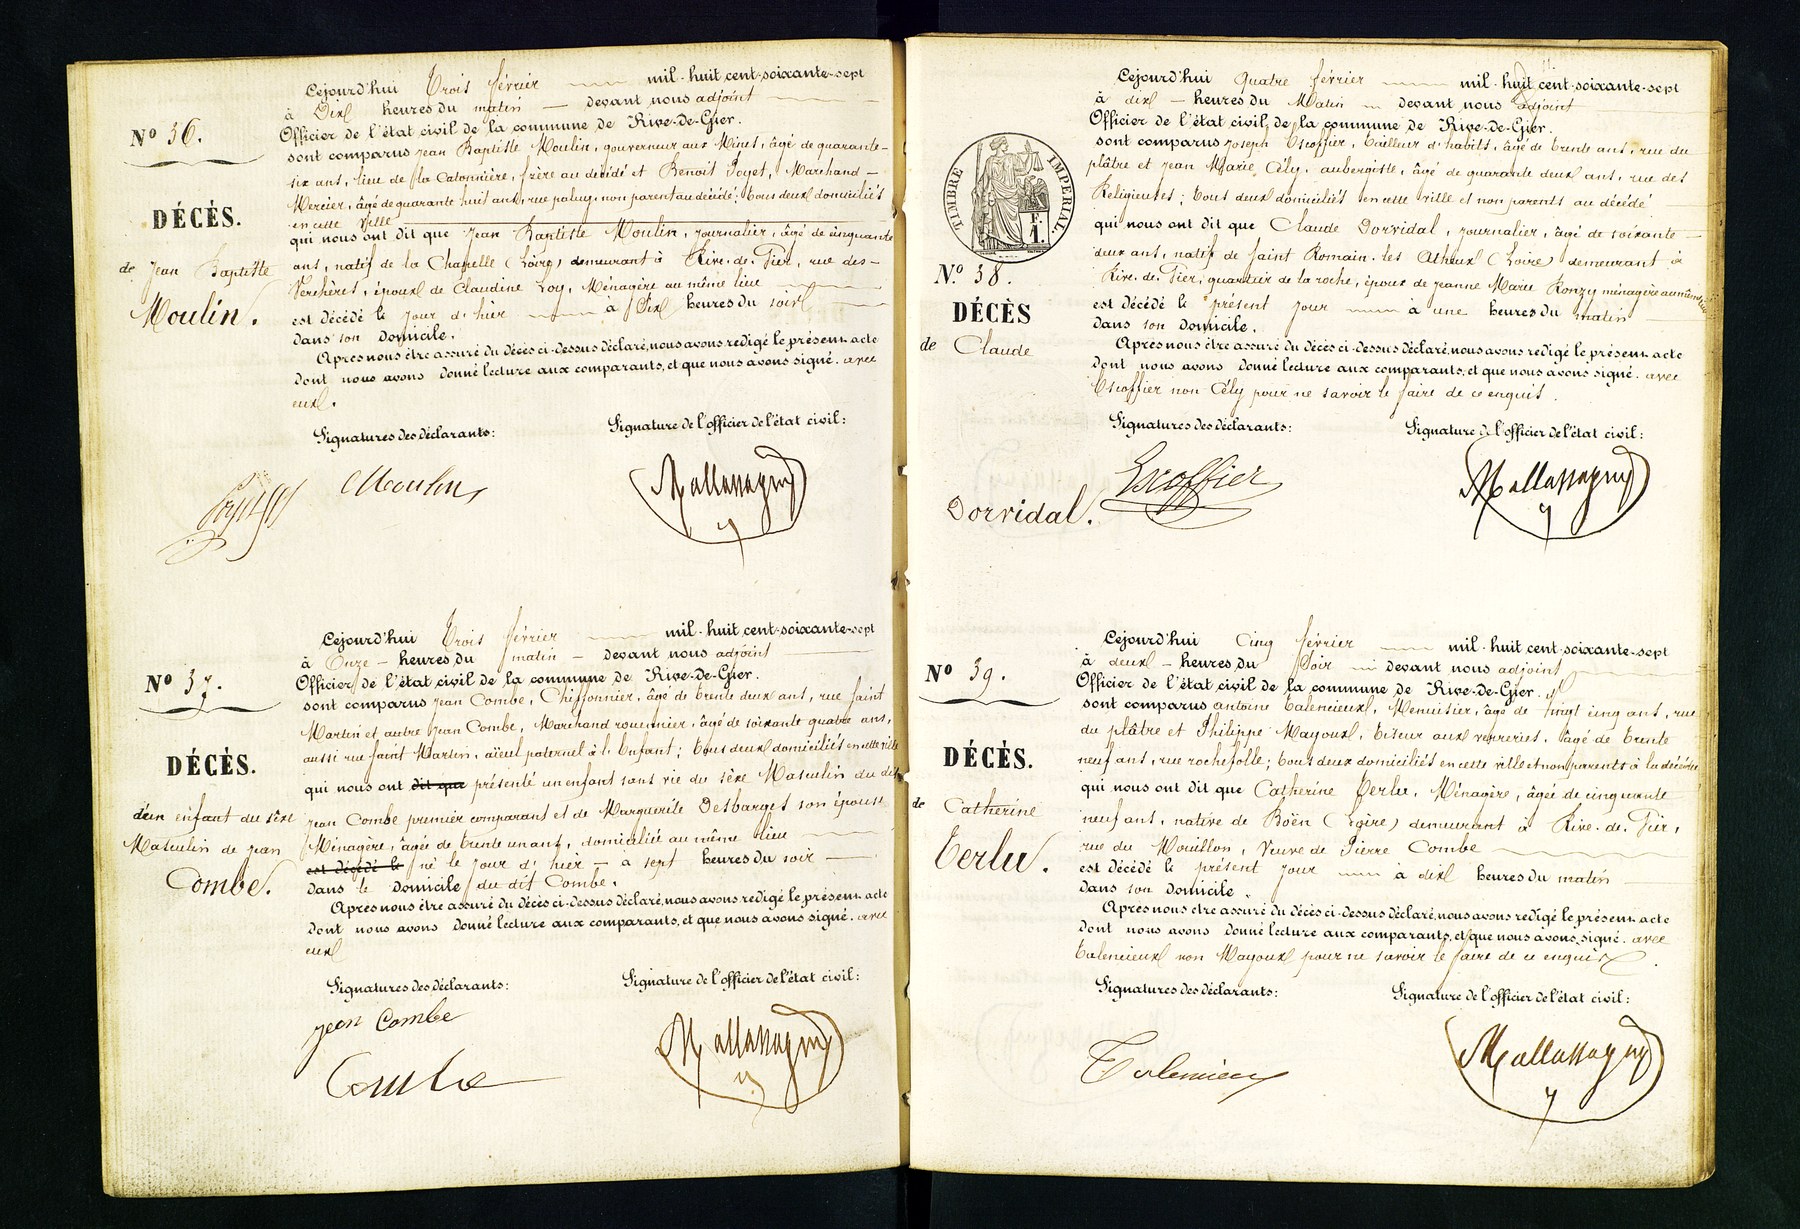 Cejourd'hui Trois février mil-huit cent-soixante-sept
à Dix heures du matin — devant nous adjoint
Officier de l'état civil de la commune de Rive-de-Gier.
N° 36.
sont comparus Jean Baptiste Moulin, gouverneur aux Mines, âgé de quarante-
six ans, lieu de la Catonnière, frère au décédé et Benoit Poyet, Marchand —
Mercier, âgé de quarante huit ans, rue paluy, non parent au décédé; tous deux domiciliés
en cette ville
DÉCÈS.
qui nous ont dit que Jean Baptiste Moulin, journalier, âgé de cinquante
de Jean Baptiste
Moulin.
ans, natif de la Chapelle (Loire) demeurant à Rive-de-Gier, rue des-
Verchères, époux de Claudine Loy, Ménagère au même lieu
est décédé le jour d'hier à Dix heures du soir
dans son domicile.
Après nous être assuré du décès ci-dessus déclaré, nous avons redigé le présent acte
dont nous avons donné lecture aux comparants, et que nous avons signé. avec
eux.
Signatures des déclarants:
Signature de l'officier de l'état civil:
Moulin
Mallassagny
Cejourd'hui Trois février mil-huit cent-soixante-sept
à Onze — heures du matin — devant nous adjoint
Officier de l'état civil de la commune de Rive-de-Gier.
N° 37.
sont comparus Jean Combe, Chiffonnier, âgé de trente deux ans, rue saint
Martin et autre Jean Combe, Marchand rouennier, âgé de soixante quatre ans,
aussi rue saint Martin, aïeul paternel à l'Enfant; tous deux domiciliés en cette ville
DÉCÈS.
qui nous ont dit que présenté un enfant sans vie du sèxe Masculin du dit
d'un enfant du sèxe
Masculin de Jean
Combe.
Jean Combe premier comparant et de Marguerite Desbarges son épouse
Ménagère, âgée de trente un ans, domiciliée au même lieu
est décédé le né le jour d'hier — à sept heures du soir —
dans le domicile du dit Combe.
Après nous être assuré du décès ci-dessus déclaré, nous avons redigé le présent acte
dont nous avons donné lecture aux comparants, et que nous avons signé. avec
eux
Signatures des déclarants:
Signature de l'officier de l'état civil:
Jean Combe
Combe
Mallassagny
Cejourd'hui Quatre février mil-huit cent-soixante-sept
à dix — heures du Matin — devant nous adjoint
Officier de l'état civil de la commune de Rive-de-Gier.
TIMBRE IMPERIAL.
F.
1.
N° 38.
sont comparus Joseph Escoffier, tailleur d'habits, âgé de trente ans, rue du
plâtre et Jean Marie Cély, aubergiste, âgé de quarante deux ans, rue des
Religieuses; tous deux domiciliés en cette ville et non parents au décédé
DÉCÈS
de Claude
Dorvidal.
qui nous ont dit que Claude Dorvidal, journalier, âgé de soixante
deux ans, natif de saint Romain-les Atheux (Loire) demeurant à
Rive-de-Gier, quartier de la roche, époux de Jeanne Marie Ronzy ménagère au même lieu
est décédé le présent jour à une heures du matin
dans son domicile.
Après nous être assuré du décès ci-dessus déclaré, nous avons redigé le présent acte
dont nous avons donné lecture aux comparants, et que nous avons signé. avec
Escoffier non Cély pour ne savoir le faire de ce enquis.
Signatures des déclarants:
Signature de l'officier de l'état civil:
Escoffier
Mallassagny
Cejourd'hui Cinq février mil-huit cent-soixante-sept
à deux — heures du Soir — devant nous adjoint
Officier de l'état civil de la commune de Rive-de-Gier.
N° 39.
sont comparus antoine Talencieux, Menuisier, âgé de Vingt cinq ans, rue
du plâtre et Philippe Mayoux, tiseur aux verreries, âgé de trente
neuf ans, rue rochefolle; tous deux domiciliés en cette ville et non parents à la décédée
DÉCÈS.
de Catherine
Terlu.
qui nous ont dit que Catherine Terlu, Ménagère, âgée de cinquante
neuf ans, native de Boën (Loire) demeurant à Rive-de-Gier,
rue du Mouillon, Veuve de Pierre Combe
est décédé le présent jour à dix heures du matin
dans son domicile.
Après nous être assuré du décès ci-dessus déclaré, nous avons redigé le présent acte
dont nous avons donné lecture aux comparants, et que nous avons signé. avec
Talencieux non Mayoux pour ne savoir le faire de ce enquis.
Signatures des déclarants:
Signature de l'officier de l'état civil:
Talencieux
Mallassagny